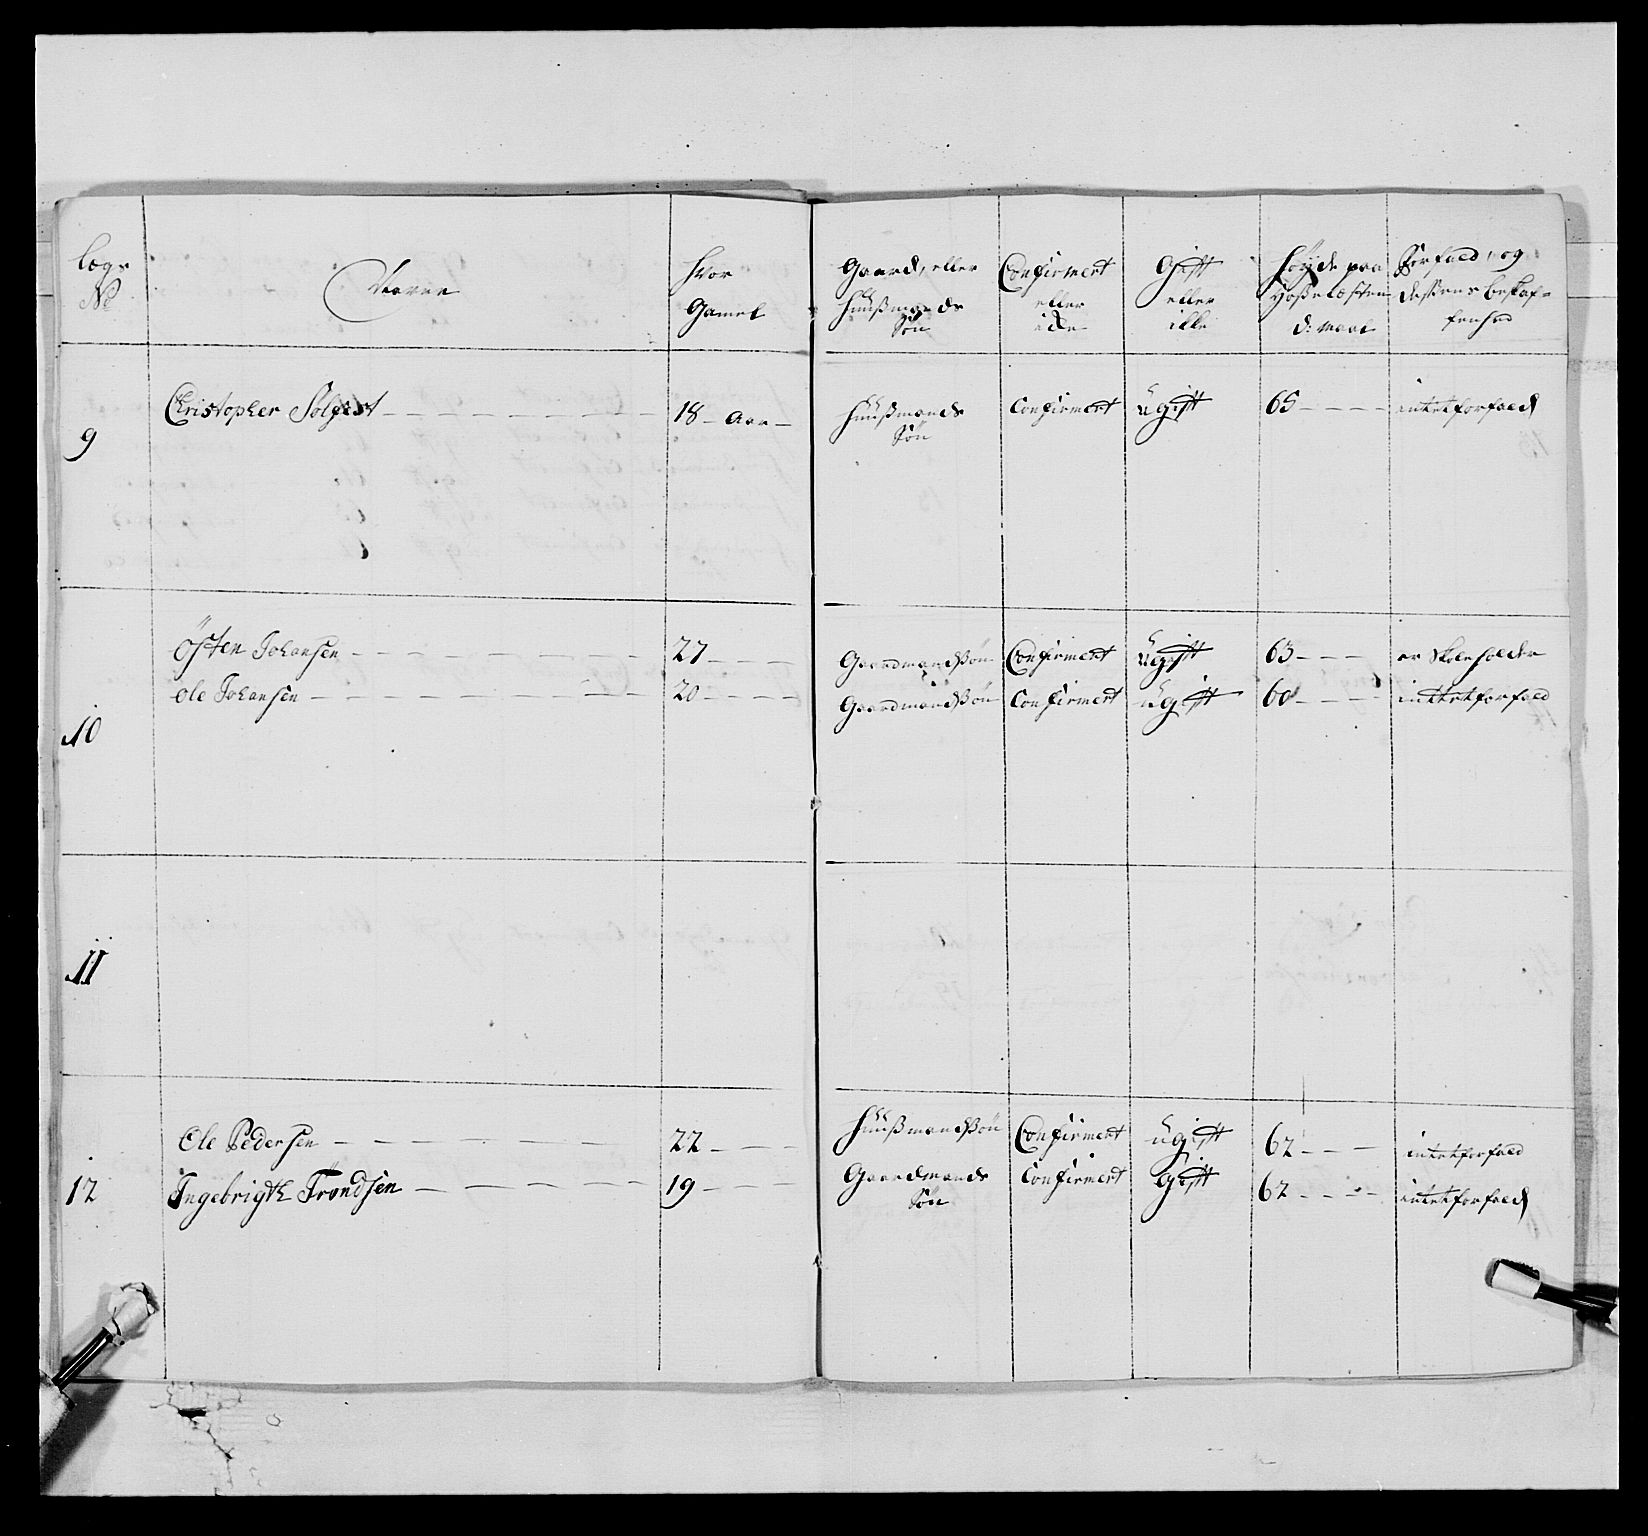 Legs No | Navne | Hvor Gamel | Gaard, eller Huusmands Søn | Confirmert eller icke | Gift eller ikke | Høyde paa Hosselæsten d: maal | Forfald, og dessens beskaffenhed
9 | Christopher Solfest | 18 Aar | Huusmands Søn | Confirmert | ugift | 65 | intet forfald
10 | Østen Johansen | 27 | Gaardmandssøn | Confirmert | ugift | 63 | er Skoleholder
Ole Johansen | 20 | Gaardmandssøn | Confirmert | ugift | 60 | intet forfald
11
12 | Ole Pedersen | 22 | Huusmandssøn | Confirmert | ugift | 62 | intet forfald
Ingebrigth Trondsen | 19 | Gaardmands Søn | Confirmert | Gift | 62 | intet forfald